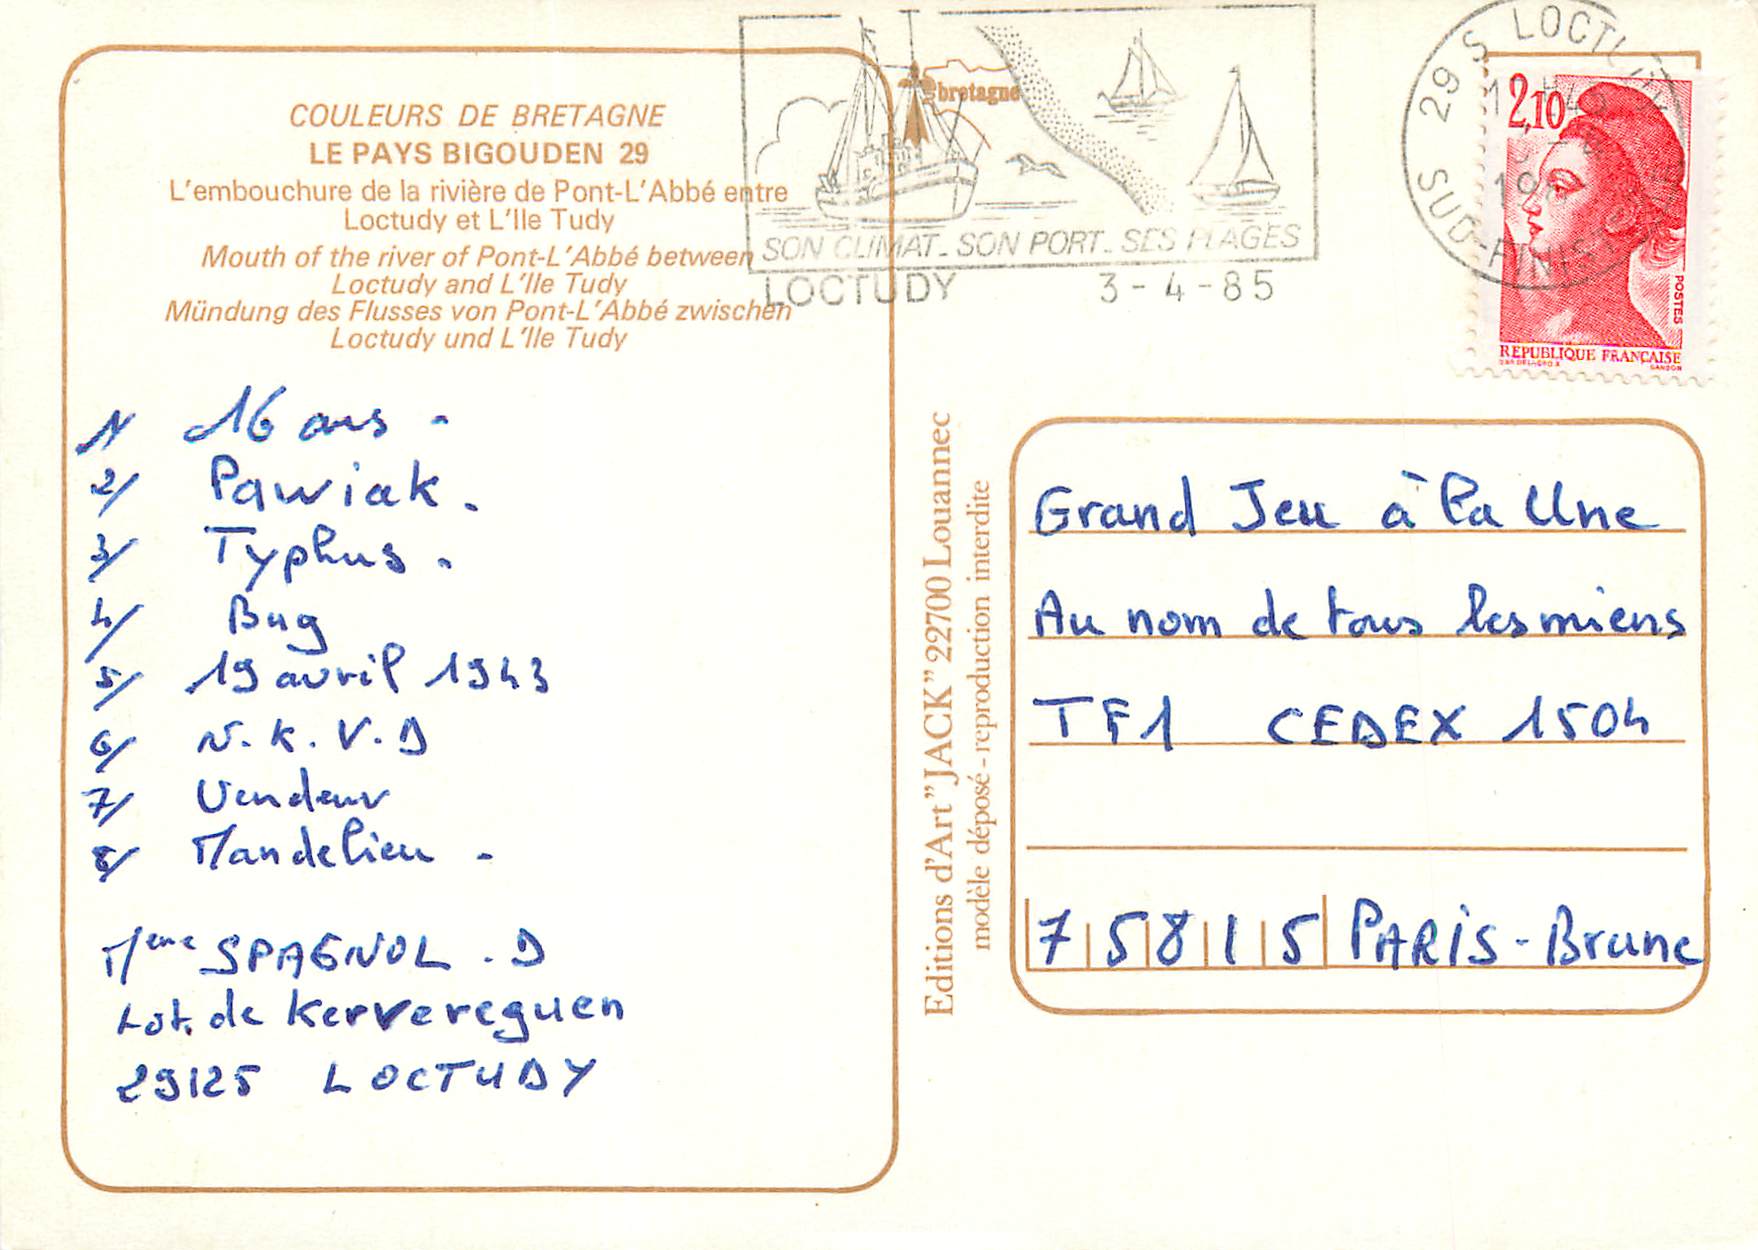 COULEURS DE BRETAGNE
LE PAYS BIGOUDEN 29
L'embouchure de la rivière de Pont-L'Abbé entre
Loctudy et L'Ile Tudy
Mouth of the river of Pont-L'Abbé between
Loctudy and L'Ile Tudy
Mündung des Flusses von Pont-L'Abbé zwischen
Loctudy und L'Ile Tudy
1/ 16 ans -
2/ Pawiak.
3/ Typhus.
4/ Bug
5/ 19 avril 1943
6/ N.K.V.D
7/ Vendeur
8/ Mandelieu -
Mme SPAGNOL. D
Lot. de Kervereguen
29125 LOCTUDY
bretagne
SON CLIMAT_SON PORT_SES PLAGES
LOCTUDY 3-4-85
29 S LOCTUDY
SUD-FINIST
2,10
POSTES
REPUBLIQUE FRANÇAISE
GANDON
Editions d'Art "JACK" 22700 Louannec
modèle déposé - reproduction interdite
Grand Jeu à la Une
Au nom de tous les miens
TF1 CEDEX 1504
75815 PARIS-Brune